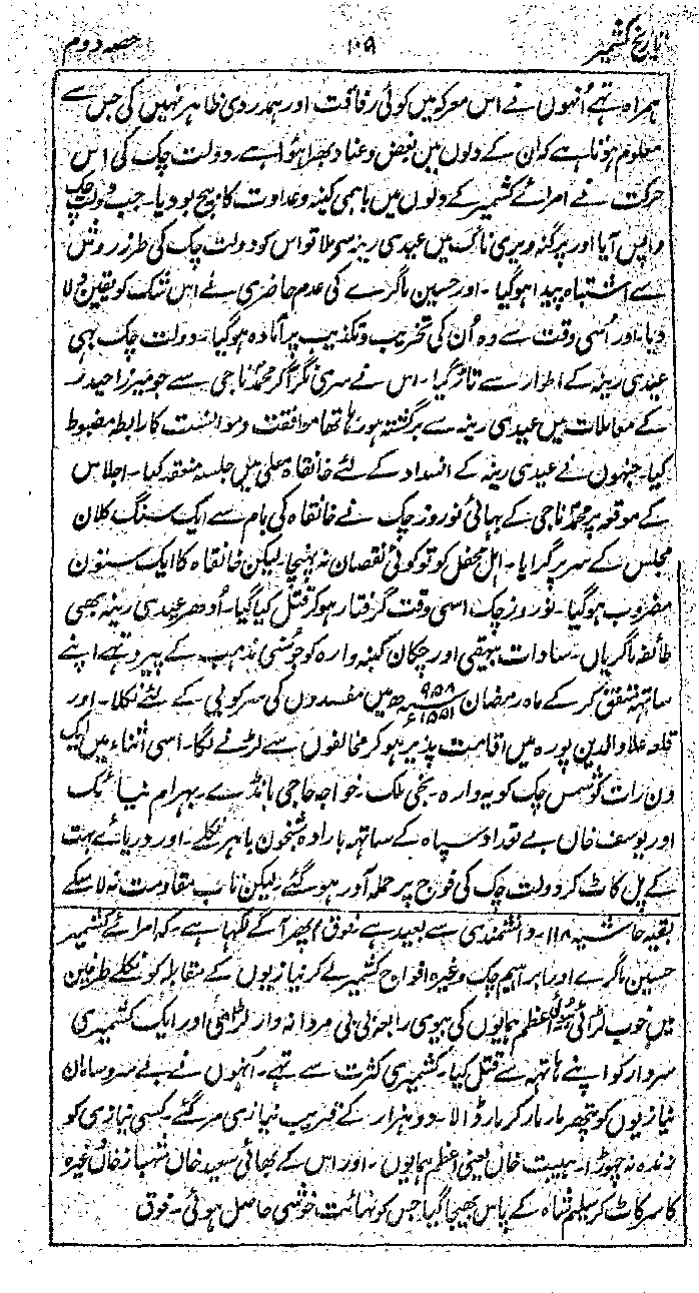 تاریخ کشمیر ۱۰۹ حصہ دوم
ہمراہ تہے اُنہوں نے اس معرکہ میں کوئی رفاقت اور ہمدردی ظاہر نہیں کی جس سے
معلوم ہوتا ہے کہ ان کے دلوں میں بغض و عناد بھرا ہوا ہے۔ دولت چک کی اس
حرکت نے امرائے کشمیر کے دلوں میں باہمی کینہ و عداوت کا بیج بو دیا۔ جب دولت چک
واپس آیا اور پرگنہ ویری ناگ میں عیدی رینہ سے ملا تو اس کو دولت چک کی طرز روش
سے اشتباہ پیدا ہوگیا۔ اور حسین ماگرے کی عدم حاضری نے اس شک کو یقین دلا
دیا۔ اور اُسی وقت سے وہ اُن کی تخریب و تکذیب پر آمادہ ہوگیا۔ دولت چک بہی
عیدی رینہ کے اطوار سے تاڑ گیا۔ اس نے سری نگر آکر محمد ناجی سے جو میرزا حیدر
کے معاملات میں عیدی رینہ سے برگشتہ ہو رہا تھا موافقت و موانست کا رابطہ مضبوط
کیا۔ جنہوں نے عیدی رینہ کے انسداد کے لئے خانقاہ معلی میں جلسہ منعقد کیا۔ اجلاس
کے موقعہ پر محمد ناجی کے بہائی نوروز چک نے خانقاہ کی بام سے ایک سنگ کلان
مجلس کے سر پر گرایا۔ اہل محفل کو تو کوئی نقصان نہ پہنچا۔ لیکن خانقاہ کا ایک ستون
مضروب ہوگیا۔ نوروز چک اسی وقت گرفتار ہو کر قتل کیا گیا۔ اُدھر عیدی رینہ بھی
طائفہ ماگریاں۔ سادات بیہقی اور چکان کپہ وارہ کو جو سُنی مذہب کے پیرو تہے اپنے
ساتہہ متفق کر کے ماہ رمضان ۹۵۸ھ ۱۵۵۱ء میں مفسدوں کی سرکوبی کے لئے نکلا۔ اور
قلعہ علاؤالدین پورہ میں اقامت پذیر ہو کر مخالفوں سے لڑنے لگا۔ اسی اثناء میں ایک
دن رات کو شمس چک کوپہ وارہ۔ نجی ملک۔ خواجہ حاجی بانڈے۔ بہرام نیا ٹیک
اور یوسف خان بے تعداد سپاہ کے ساتہہ بارادہ شبخون باہر نکلے۔ اور دریائے بہت
کے پل کاٹ کر دولت چک کی فوج پر حملہ آور ہو گئے۔ لیکن تاب مقاومت نہ لا سکے
بقیہ حاشیہ ۱۱۸۔ دانشمندی سے بعید ہے فوق) پھر آگے لکہا ہے۔ کہ امرائے کشمیر
حسین ماگرے اور ابراہیم چک وغیرہ افواج کشمیر لے کر نیازیوں کے مقابلہ کو نکلے طرفین
میں خوب لڑائی ہوئی اعظم ہمایوں کی بیوی رابعہ بی بی مردانہ وار لڑی اور ایک کشمیری
سردار کو اپنے ہاتہہ سے قتل کیا۔ کشمیری کثرت سے تہے۔ اُنہوں نے بے سروسامان
نیازیوں کو پتھر مار مار کر مار ڈالا۔ دو ہزار کے قریب نیازی مر گئے۔ کسی نیازی کو
زندہ نہ چھوڑا۔ ہیبت خان یعنی اعظم ہمایوں۔ اور اس کے بھائی سعید خان شہباز خان وغیرہ
کا سر کاٹ کر سلیم شاہ کے پاس بھیجا گیا جس کو نہایت خوشی حاصل ہوئی۔ فوق